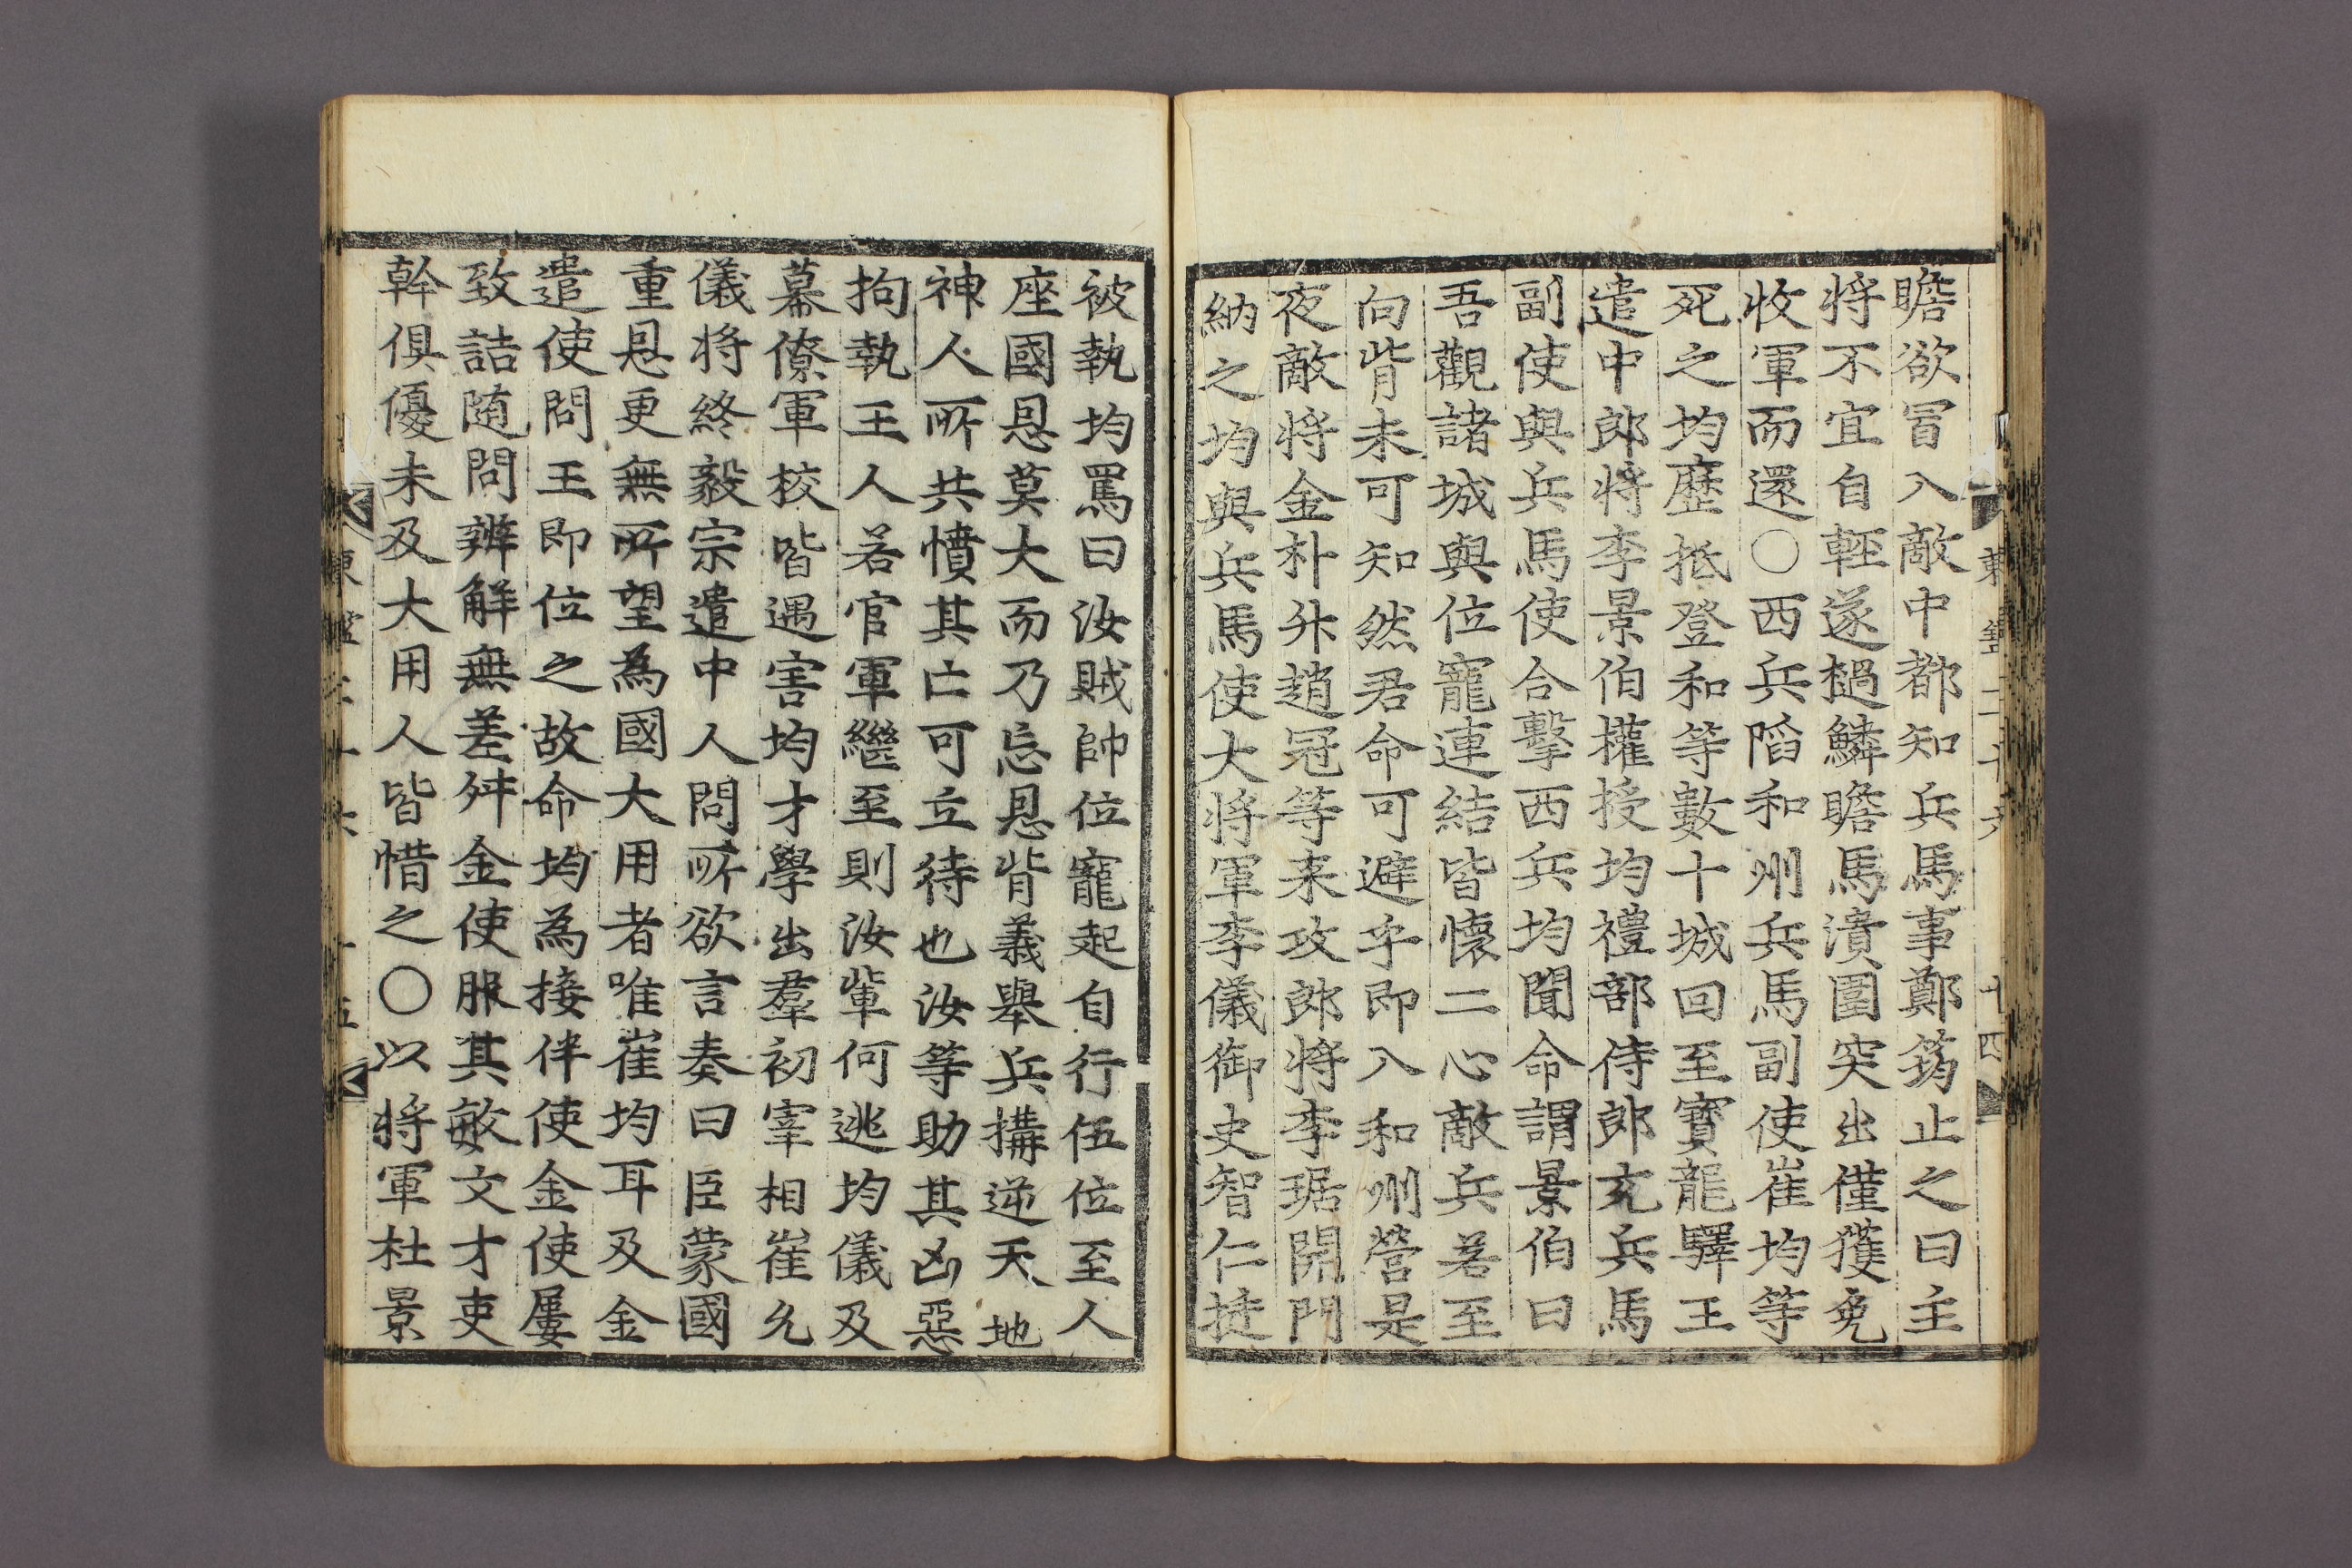 瞻欲冒入敵中都知兵馬事鄭筠止之曰主
將不宜自輕遂檛鱗瞻馬潰圍突出僅獲免
收軍而還○西兵陷和州兵馬副使崔均等
死之均歷抵登和等數十城回至寶龍驛王
遣中郎將李景伯權授均禮部侍郎充兵馬
副使與兵馬使合擊西兵均聞命謂景伯曰
吾觀諸城與位寵連結皆懷二心敵兵若至
向背未可知然君命可避乎即入和州營是
夜敵將金朴升趙冠等来攻郎將李琚開門
納之均與兵馬使大將軍李儀御史智仁挺
被執均罵曰汝賊帥位寵起自行伍位至人
座國恩莫大而乃忘恩背義舉兵搆逆天地
神人所共憤其亡可立待也汝等助其凶惡
拘執王人若官軍繼至則汝輩何逃均儀及
幕僚軍校皆遇害均才學出羣初宰相崔允
儀將終毅宗遣中人問所欲言奏曰臣蒙國
重恩更無所望為國大用者唯崔均耳及金
遣使問王即位之故命均為接伴使金使屢
致詰随問辨解無差舛金使服其敏文才吏
幹俱優未及大用人皆惜之○以將軍杜景